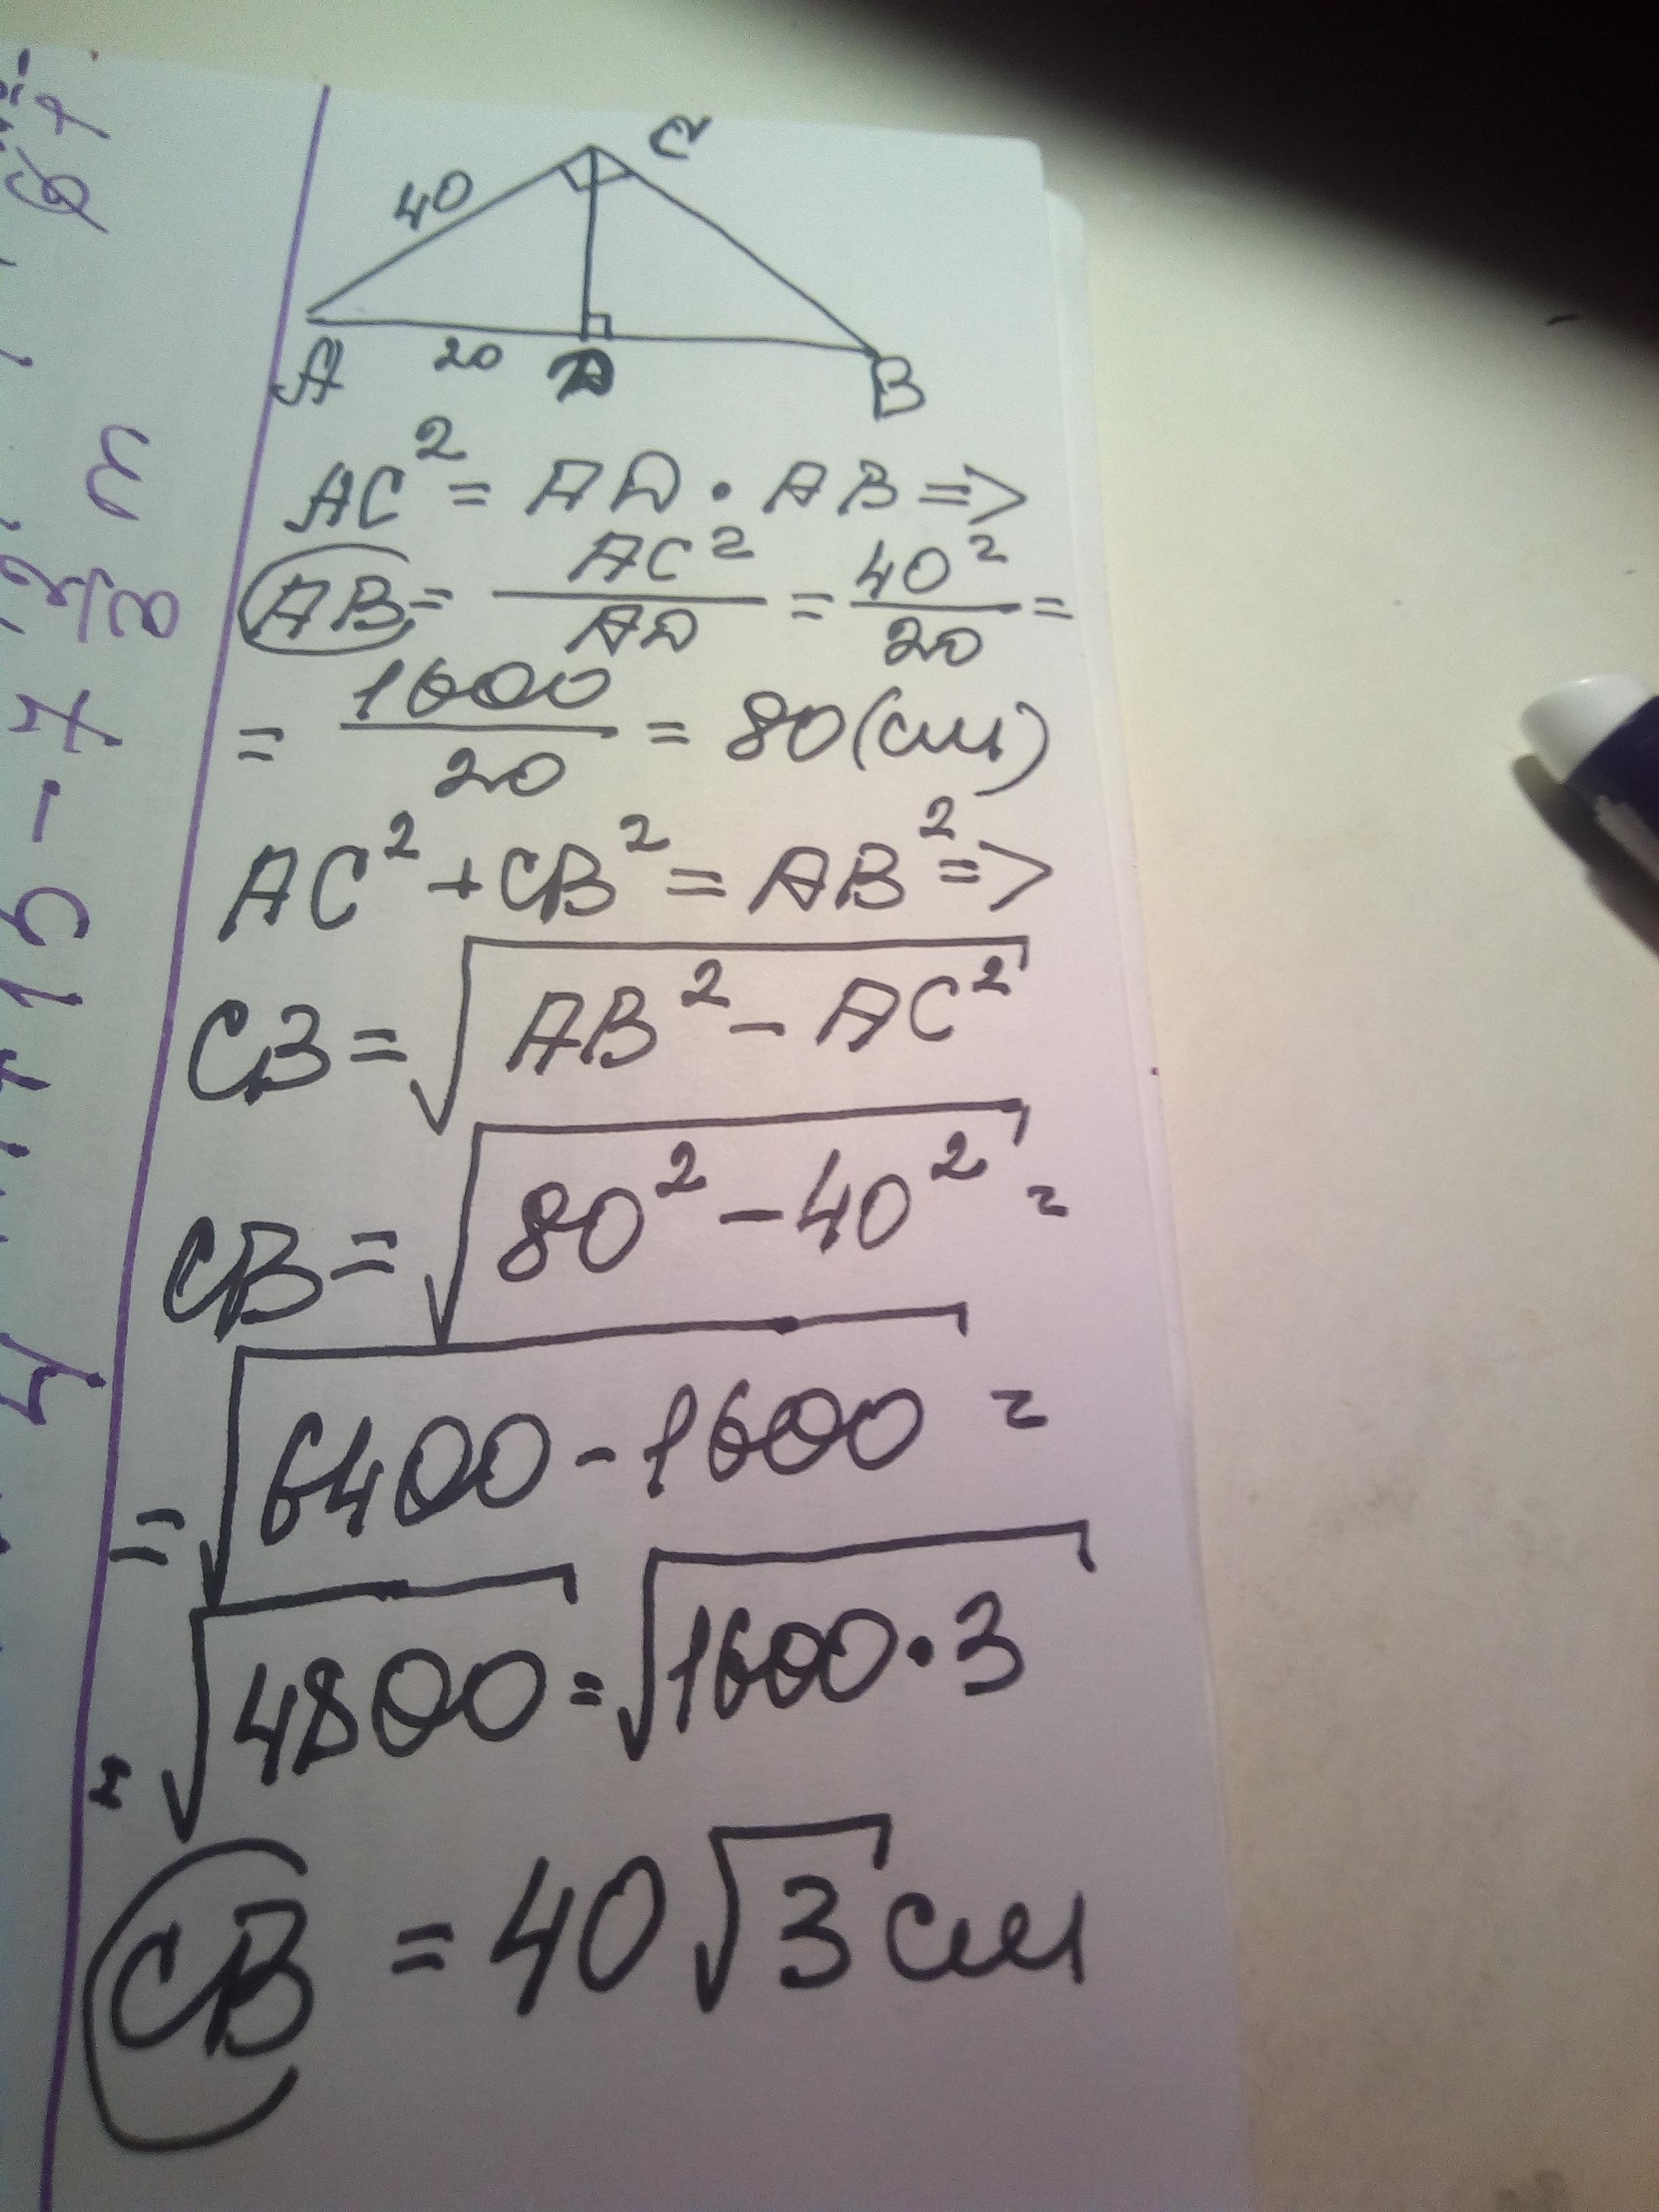 C
40
A 20 D B
AC² = AD · AB =>
AB = AC²/AD = 40²/20 =
= 1600/20 = 80 (см)
AC² + CB² = AB² =>
CB = √(AB² - AC²)
CB = √(80² - 40²) =
= √(6400 - 1600) =
= √4800 = √(1600 · 3)
CB = 40√3 см